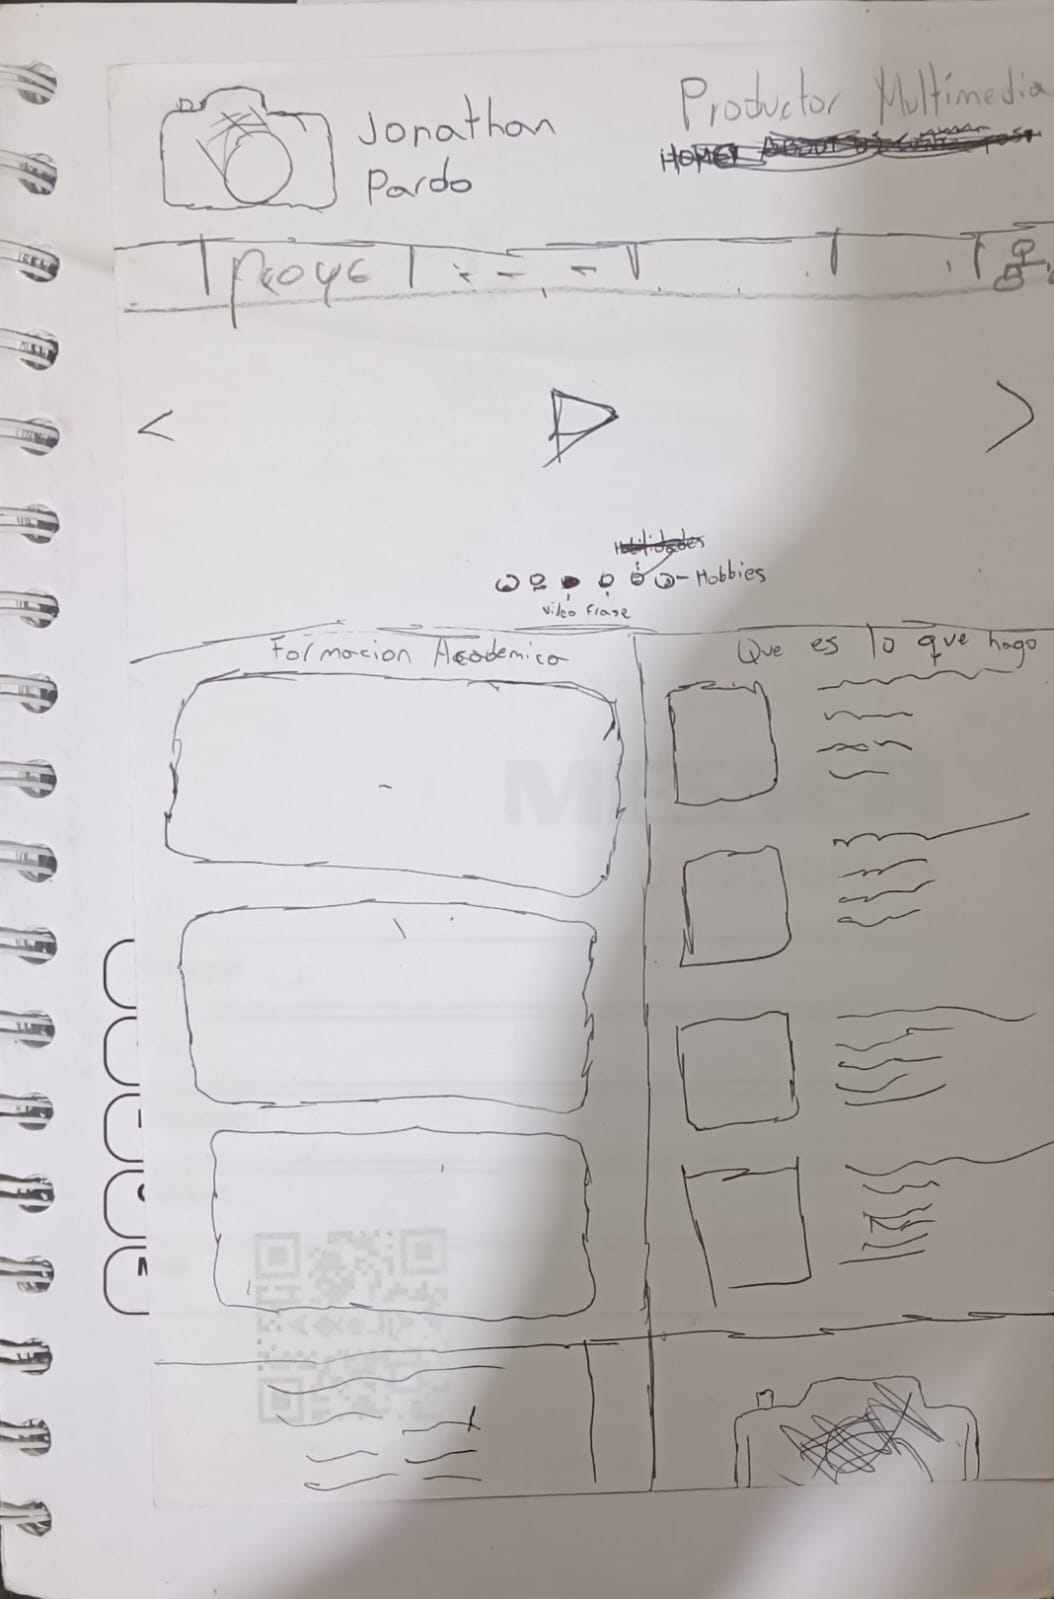 Jonathan
Pardo
Productor Multimedia
HOME ABOUT US
Proye
Habilidades
- Hobbies
Video Frase
Formacion Academica
Que es lo que hago